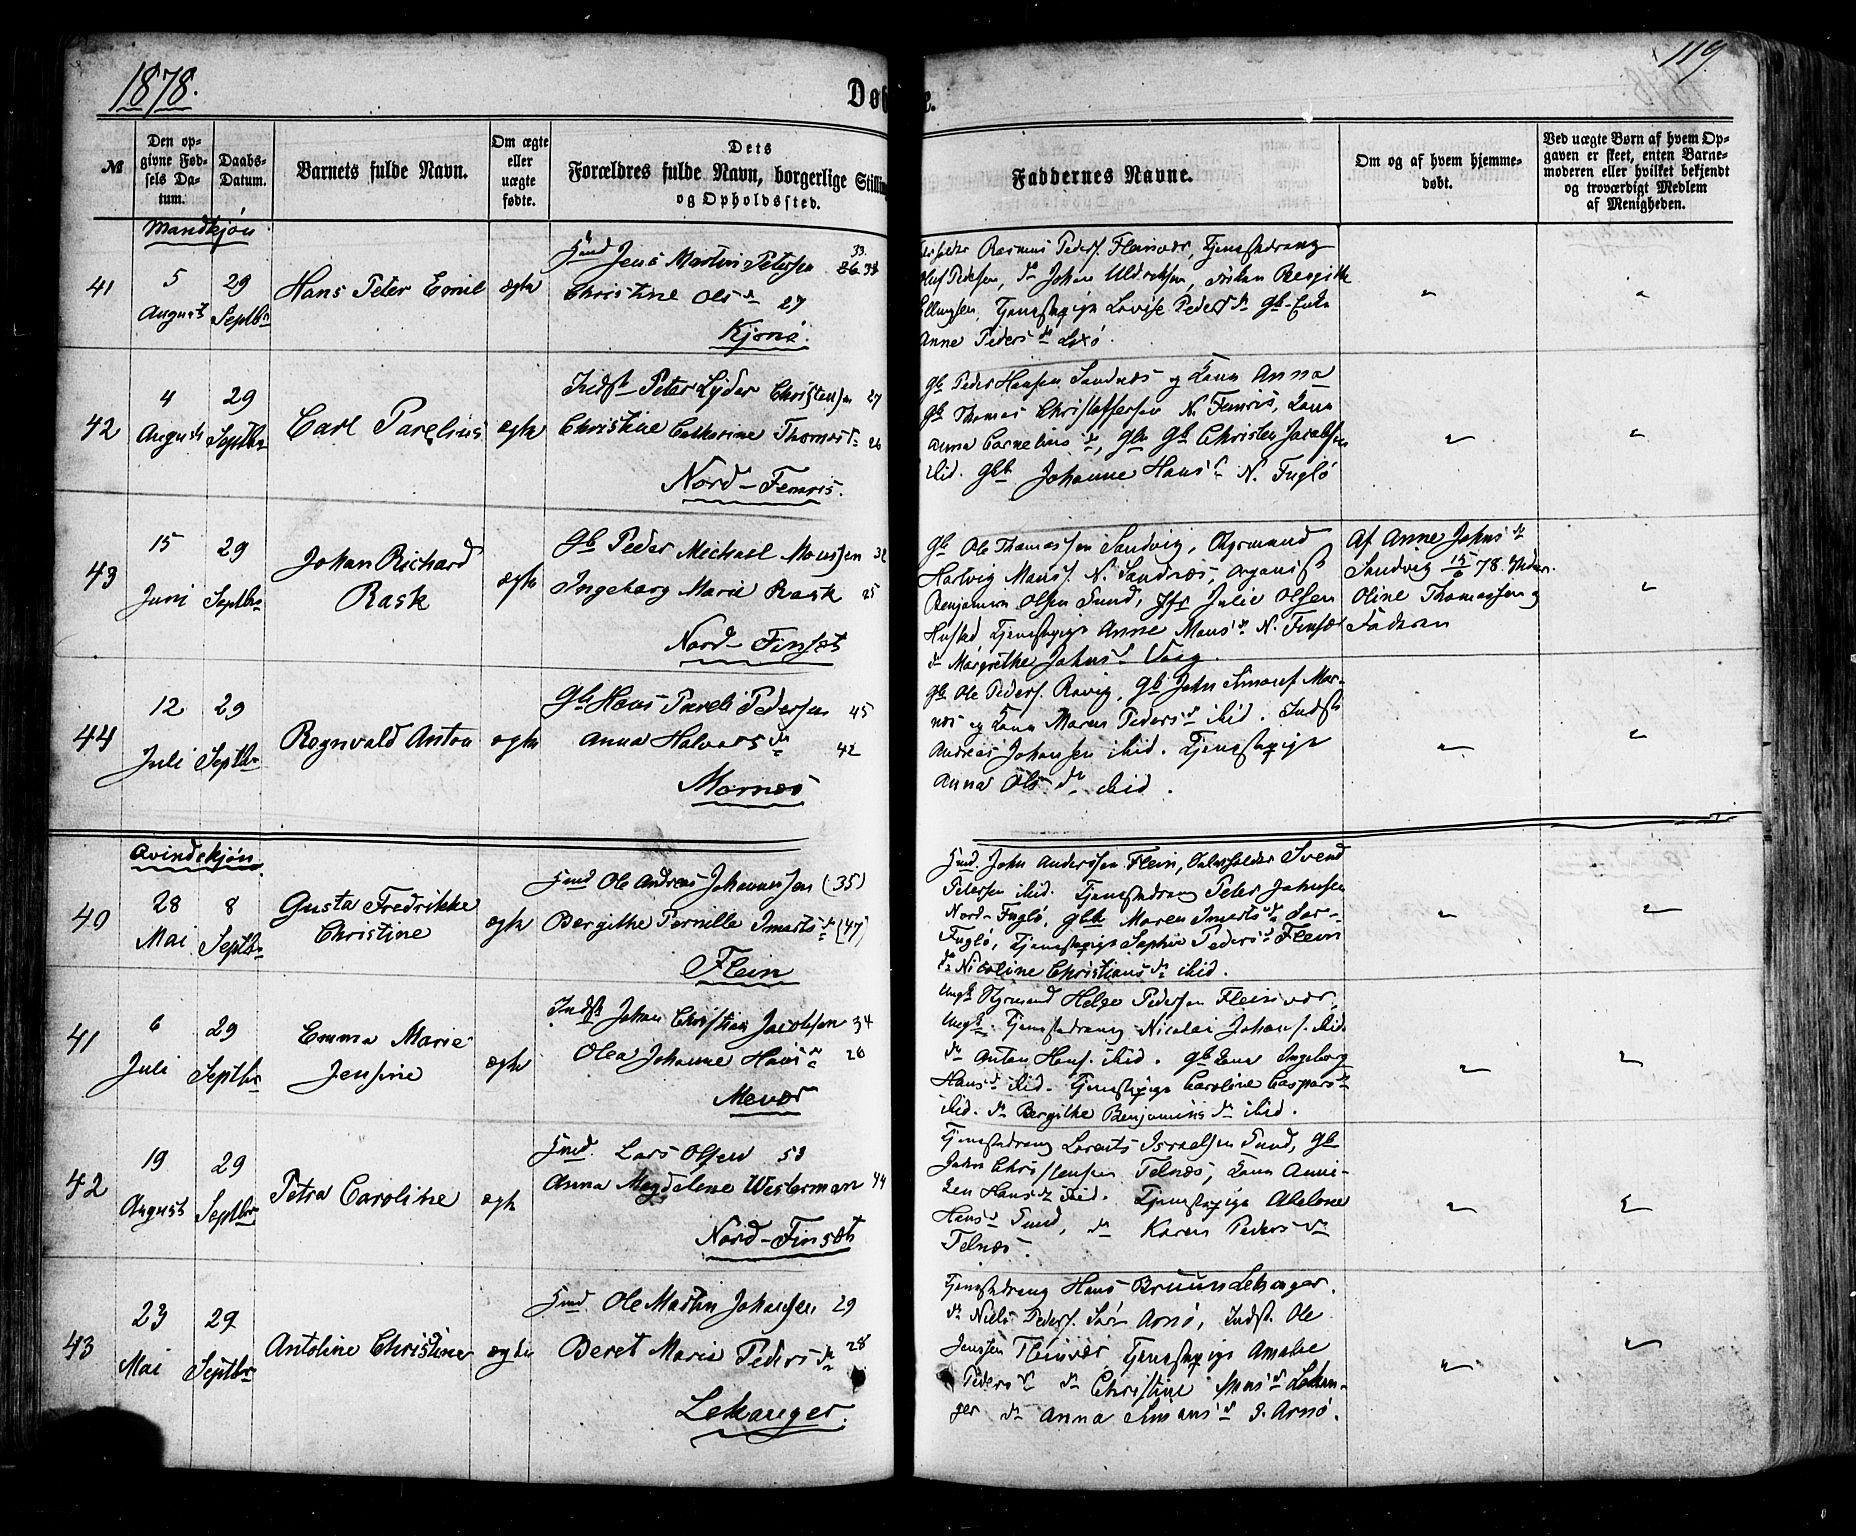 1878.
119
Døbte.
№
Den op-
givne Fød-
sels Da-
tum.
Daabs-
Datum.
Barnets fulde Navn.
Om ægte
eller
uægte
fødte.
Dets
Forældres fulde Navn, borgerlige Stilling
og Opholdssted.
Faddernes Navne.
Om og af hvem hjemme-
døbt.
Ved uægte Børn af hvem Op-
gaven er skeet, enten Barne-
moderen eller hvilket bekjendt
og troværdigt Medlem
af Menigheden.
Mandkjøn
41
5
August
29
Septbr
Hans Peter Emil
ægte
Jens Martin Petersen 33
Christine Olsd 27
Kjønø.
Rasmus Peders. Fleinvær, Tjenestedreng
Johan Uldriksen,
Tjenestepige Lovise Pedersd Gb. Enke
Anne Pedersd
42
4
August
29
Septbr
Carl Parelius
ægte
Indst Peter Lyder Christensen 27
Christine Catharine Thomasd 26
Nord-Femris.
Gb Peder Hansen Sandnæs og Kona Anna
Gb Thomas Christoffersen N. Femris, Kona
Anna Corneliusd, Gb Christen Jacobsen
ibid. Gbk Johanne Hansd N. Fuglø
43
15
Juni
29
Septbr
Johan Richard
Rask
ægte
Gb Peder Michael Monssen 32
Ingeborg Marie Rask 25
Nord-Finset
Gb Ole Thomassen Sandvig, Styrmand
Hartvig Mons. N. Sandnæs, Organist
Benjamin Olsen Sund, Jfr Julie Olsen
Hustad Tjenestepige Anne Monsd N. Finset
do Margrethe Johnsd Vaag.
Af Anne Johnsd
Sandvig 15/6 78.
Oline Thomassen og
Faderen
44
12
Juli
29
Septbr
Rognvald Anton
ægte
Gb Hans Pareli Pedersen 45
Anna Halvorsd 42
Mornes
Gb Ole Peders. Røvig, Gb John Simons. Mor-
næs og Kona Maren Pedersd ibid. Indst
Andreas Johansen ibid. Tjenestepige
Anna Olsd ibid.
Qvindekjøn
40
28
Mai
8
Septbr
Gusta Fredrikke
Christine
ægte
Hmd Ole Andreas Johannesen (35)
Bergithe Pernille Imartsd (47)
Flein
John Anderssen Flein, Svend
Petersen ibid. Tjenestedreng Peter Johnsen
Nord-Fuglø, Gbk Maren Imartsd Sør-
Fuglø, Tjenestepige Sophie Pedersd Flein
do Nicoline Christiansd ibid.
41
6
Juli
29
Septbr
Emma Marie
Jensine
ægte
Indst Johan Christian Jacobsen 34
Olea Johanne Hansd 26
Mevær
Ungk Styrmand Helge Pedersen Fleinvær,
Ungk. Tjenestedreng Nicolai Johans. ibid
do Anton Hans. ibid. Gb Kona Ingeborg
Hansd ibid. Tjenestepige Caroline Caspersd
ibid. do Bergithe Benjaminsd ibid.
42
19
August
29
Septbr
Petra Caroline
ægte
Lars Olsen 53
Anna Magdalene Westerman 44
Nord-Finset
Tjenestedreng Lorents Israelsen Sund, Gb
John Christensen Telnæs, Kona Anni-
ken Hansd ibid. Tjenestepige Abelone
Hansd Sund, do Karen Pedersd
Telnæs.
43
23
Mai
29
Septbr
Antoline Christine
ægte
Ole Martin Johansen 29
Beret Marie Pedersd 28
Lekanger.
Tjenestedreng Hans Bruun Lekanger.
do Niels Peders. Sør Arnø, Indst. Ole
Jenssen Fleinvær, Tjenestepige Amalie
Pedersd do Christine Lekan-
ger do Anna S. Arnø.